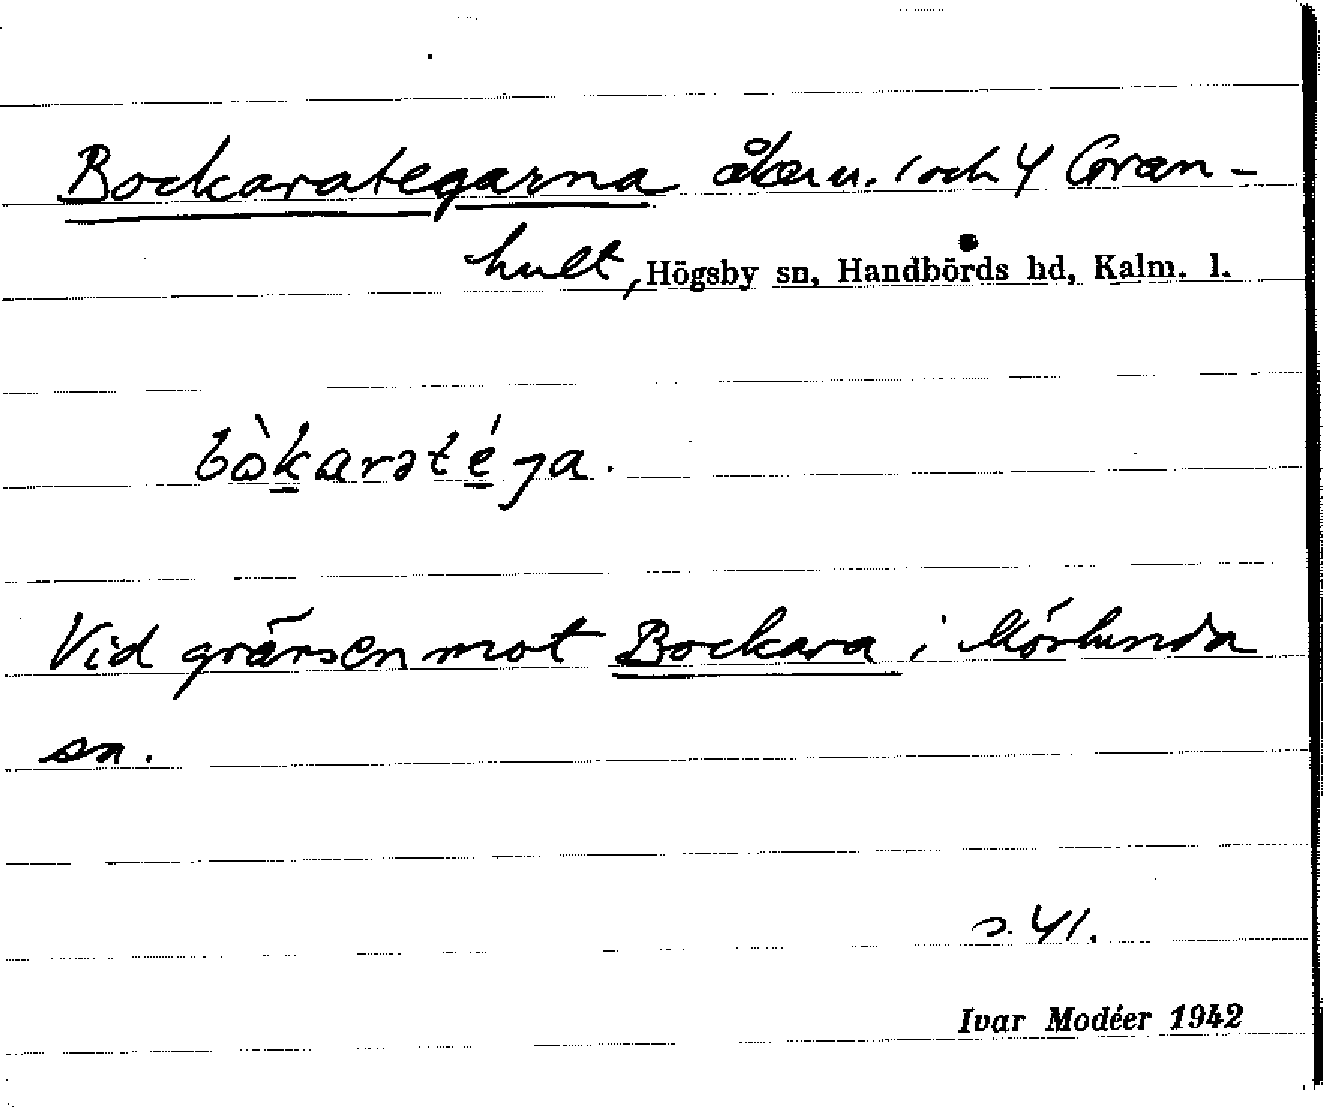 Bockarategarna åker u. 1 och 4 Gran-
hult, Högsby sn, Handbörds hd, Kalm. l.
bòkaratéga.
Vid gränsen mot Bockara i Mörlunda
sn.
s. 41.
Ivar Modéer 1942